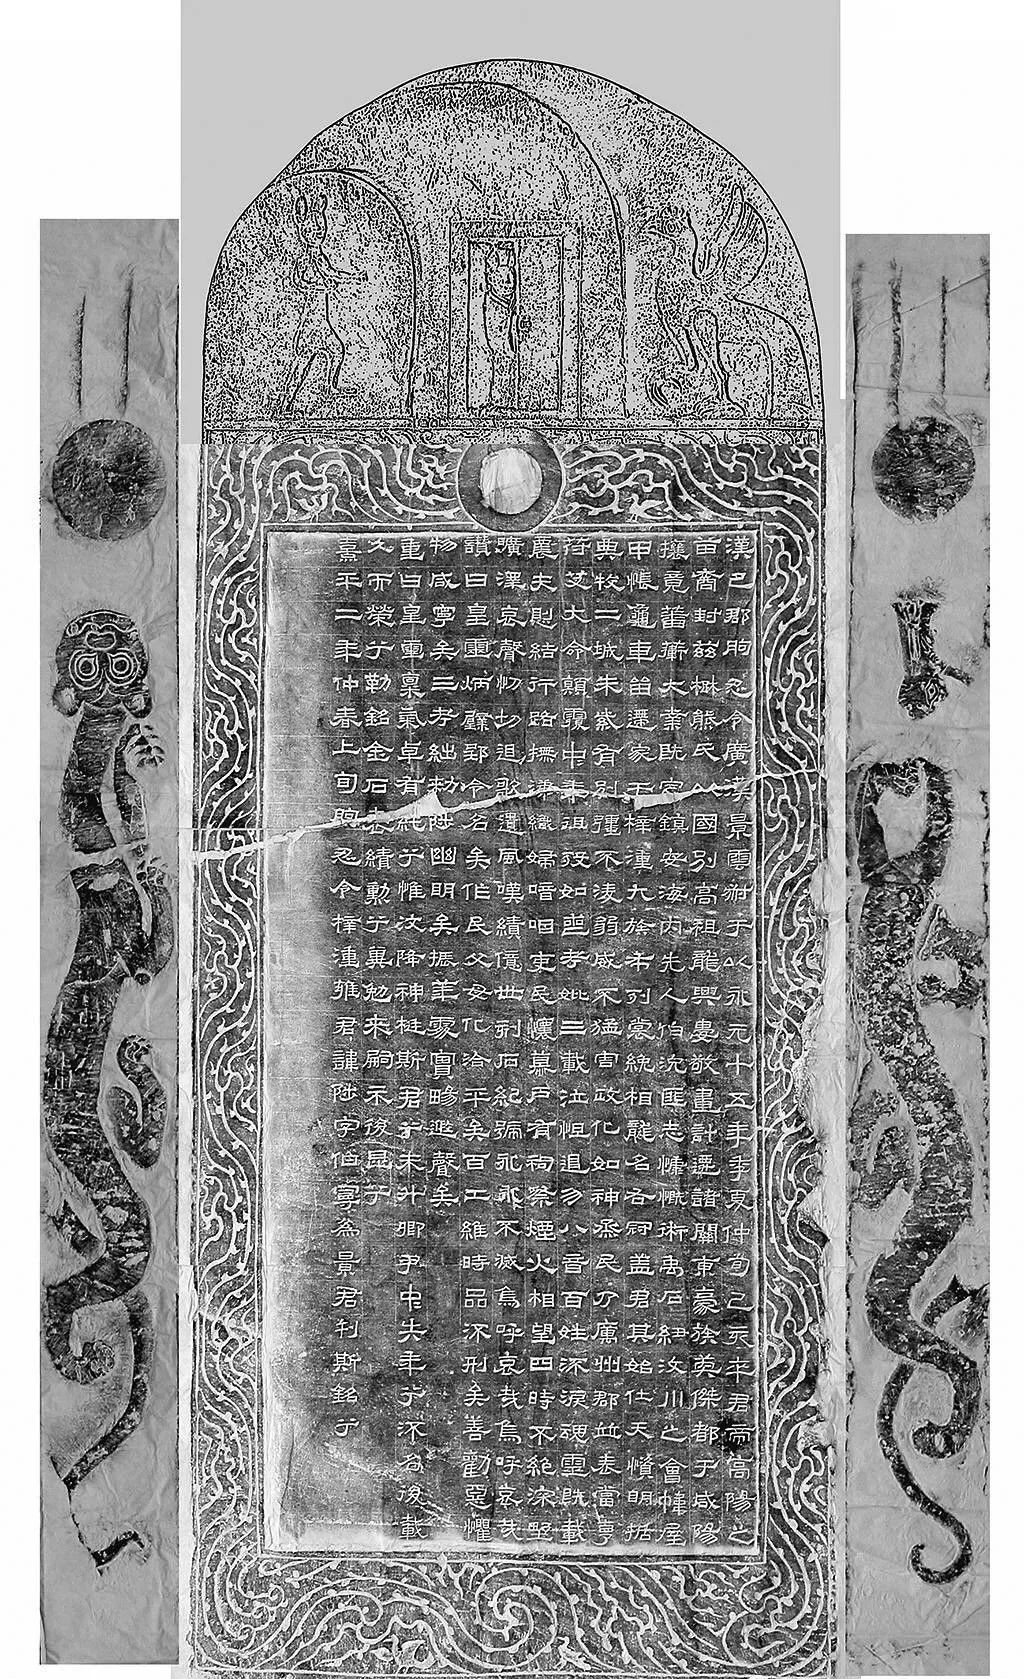 漢巴郡朐忍令廣漢景雲叔于以永元十五年季夏仲旬己亥卒君帝高陽之
苗裔封兹楙熊氏以國別高祖龍興婁敬畫計遷諸關東豪族英傑都于咸陽
攘竟蕃衛大業既定鎮安海內先人伯沇匪志慷慨術禹石紐汶川之會幃屋
甲帳龜車留遰家于梓潼九族布列裳絻相襲名右冠蓋君其始仕天資明括
典牧二城朱紫有別彊不凌弱威不猛害政化如神烝民乃厲州郡並表當亨
苻艾大命顛覆中年殂歿如喪考妣三載泣怛遏勿八音百姓流淚魂靈既載
農夫惻結行路撫涕織婦喑咽吏民懷慕戶有祠祭煙火相望四時不絕深野
曠澤哀聲忉切追歌遺風嘆績億世刻石紀號永永不滅烏呼哀哉烏呼哀哉
讚曰皇靈炳璧郢令名矣作民父母化洽平矣百工維時品流刑矣善勸惡懼
物咸寧矣三考絀敕陟幽明矣振華處實暘遐聲矣
重曰皇靈稟氣卓有純兮惟汶降神梃斯君兮未升卿尹中失年兮流名後載
久而榮兮勒銘金石表績勳兮冀勉來嗣示後昆兮
熹平二年仲春上旬朐忍令梓潼雍君諱陟字伯寧為景君刊斯銘兮